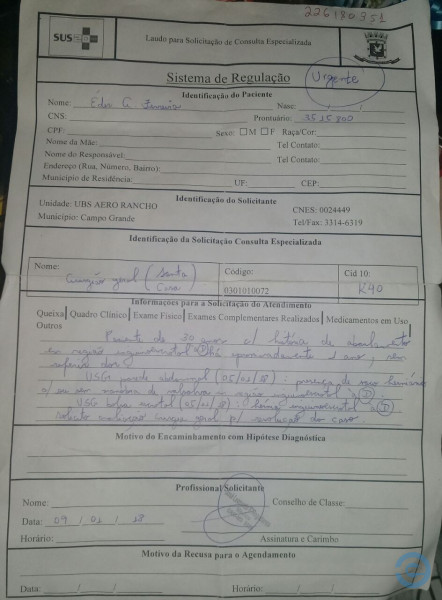 226180351
SUS
Laudo para Solicitação de Consulta Especializada
Sistema de Regulação
Urgente
Identificação do Paciente
Nome: Eder G. Nasc: / /
CNS: Prontuário: 3515800
CPF: Sexo: M F Raça/Cor:
Nome da Mãe: Tel Contato:
Nome do Responsável: Tel Contato:
Endereço (Rua, Número, Bairro):
Município de Residência: UF: CEP:
Identificação do Solicitante
Unidade: UBS AERO RANCHO CNES: 0024449
Município: Campo Grande Tel/Fax: 3314-6319
Identificação da Solicitação Consulta Especializada
Nome: Cirurgião geral (Santa Casa)
Código: 0301010072
Cid 10: K40
Informações para a Solicitação do Atendimento
Queixa| Quadro Clínico| Exame Físico| Exames Complementares Realizados| Medicamentos em Uso
Outros
Paciente de 30 anos c/ história de abaulamento
em região inguinoescrotal há aproximadamente 1 ano, sem
USG parede abdominal (05/01/18): presença de saco herniário
c/ manobra de valsalva em região inguinoescrotal D.
USG bolsa escrotal (05/01/18): hérnia inguinoescrotal D
Solicito avaliação cirurgia geral p/ do caso
Motivo do Encaminhamento com Hipótese Diagnóstica
Profissional Solicitante
Nome: Conselho de Classe:
Data: 09 / 01 / 18
Horário: Assinatura e Carimbo
Motivo da Recusa para o Agendamento
Data: / / Horário: / /